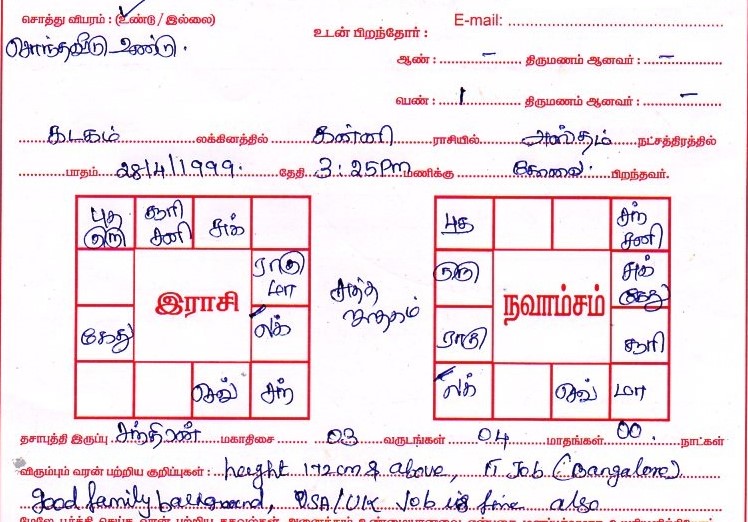 சொத்து விபரம் : (உண்டு / இல்லை) E-mail:
சொந்தவீடு உண்டு. உடன் பிறந்தோர் :
ஆண் : – திருமணம் ஆனவர் : –
பெண் : 1 திருமணம் ஆனவர் : –
கடகம் லக்கினத்தில் கன்னி ராசியில் அஸ்தம் நட்சத்திரத்தில்
பாதம் 28/4/1999. தேதி 3:25PM மணிக்கு பிறந்தவர்.
புத சூரி சுக் புத சந்
குரு சனி சனி
ராகு குரு சுக்
மா கேது
இராசி சுத்த ஜாதகம் நவாம்சம்
கேது லக் ராகு சூரி
செவ் சந் லக் செவ் மா
தசாபுத்தி இருப்பு சந்திரன் மகாதிசை 03 வருடங்கள் 04 மாதங்கள் 00 நாட்கள்
விரும்பும் வரன் பற்றிய குறிப்புகள் : height 172cm & above, IT Job (Bangalore)
good family background, USA/UK Job is fine also